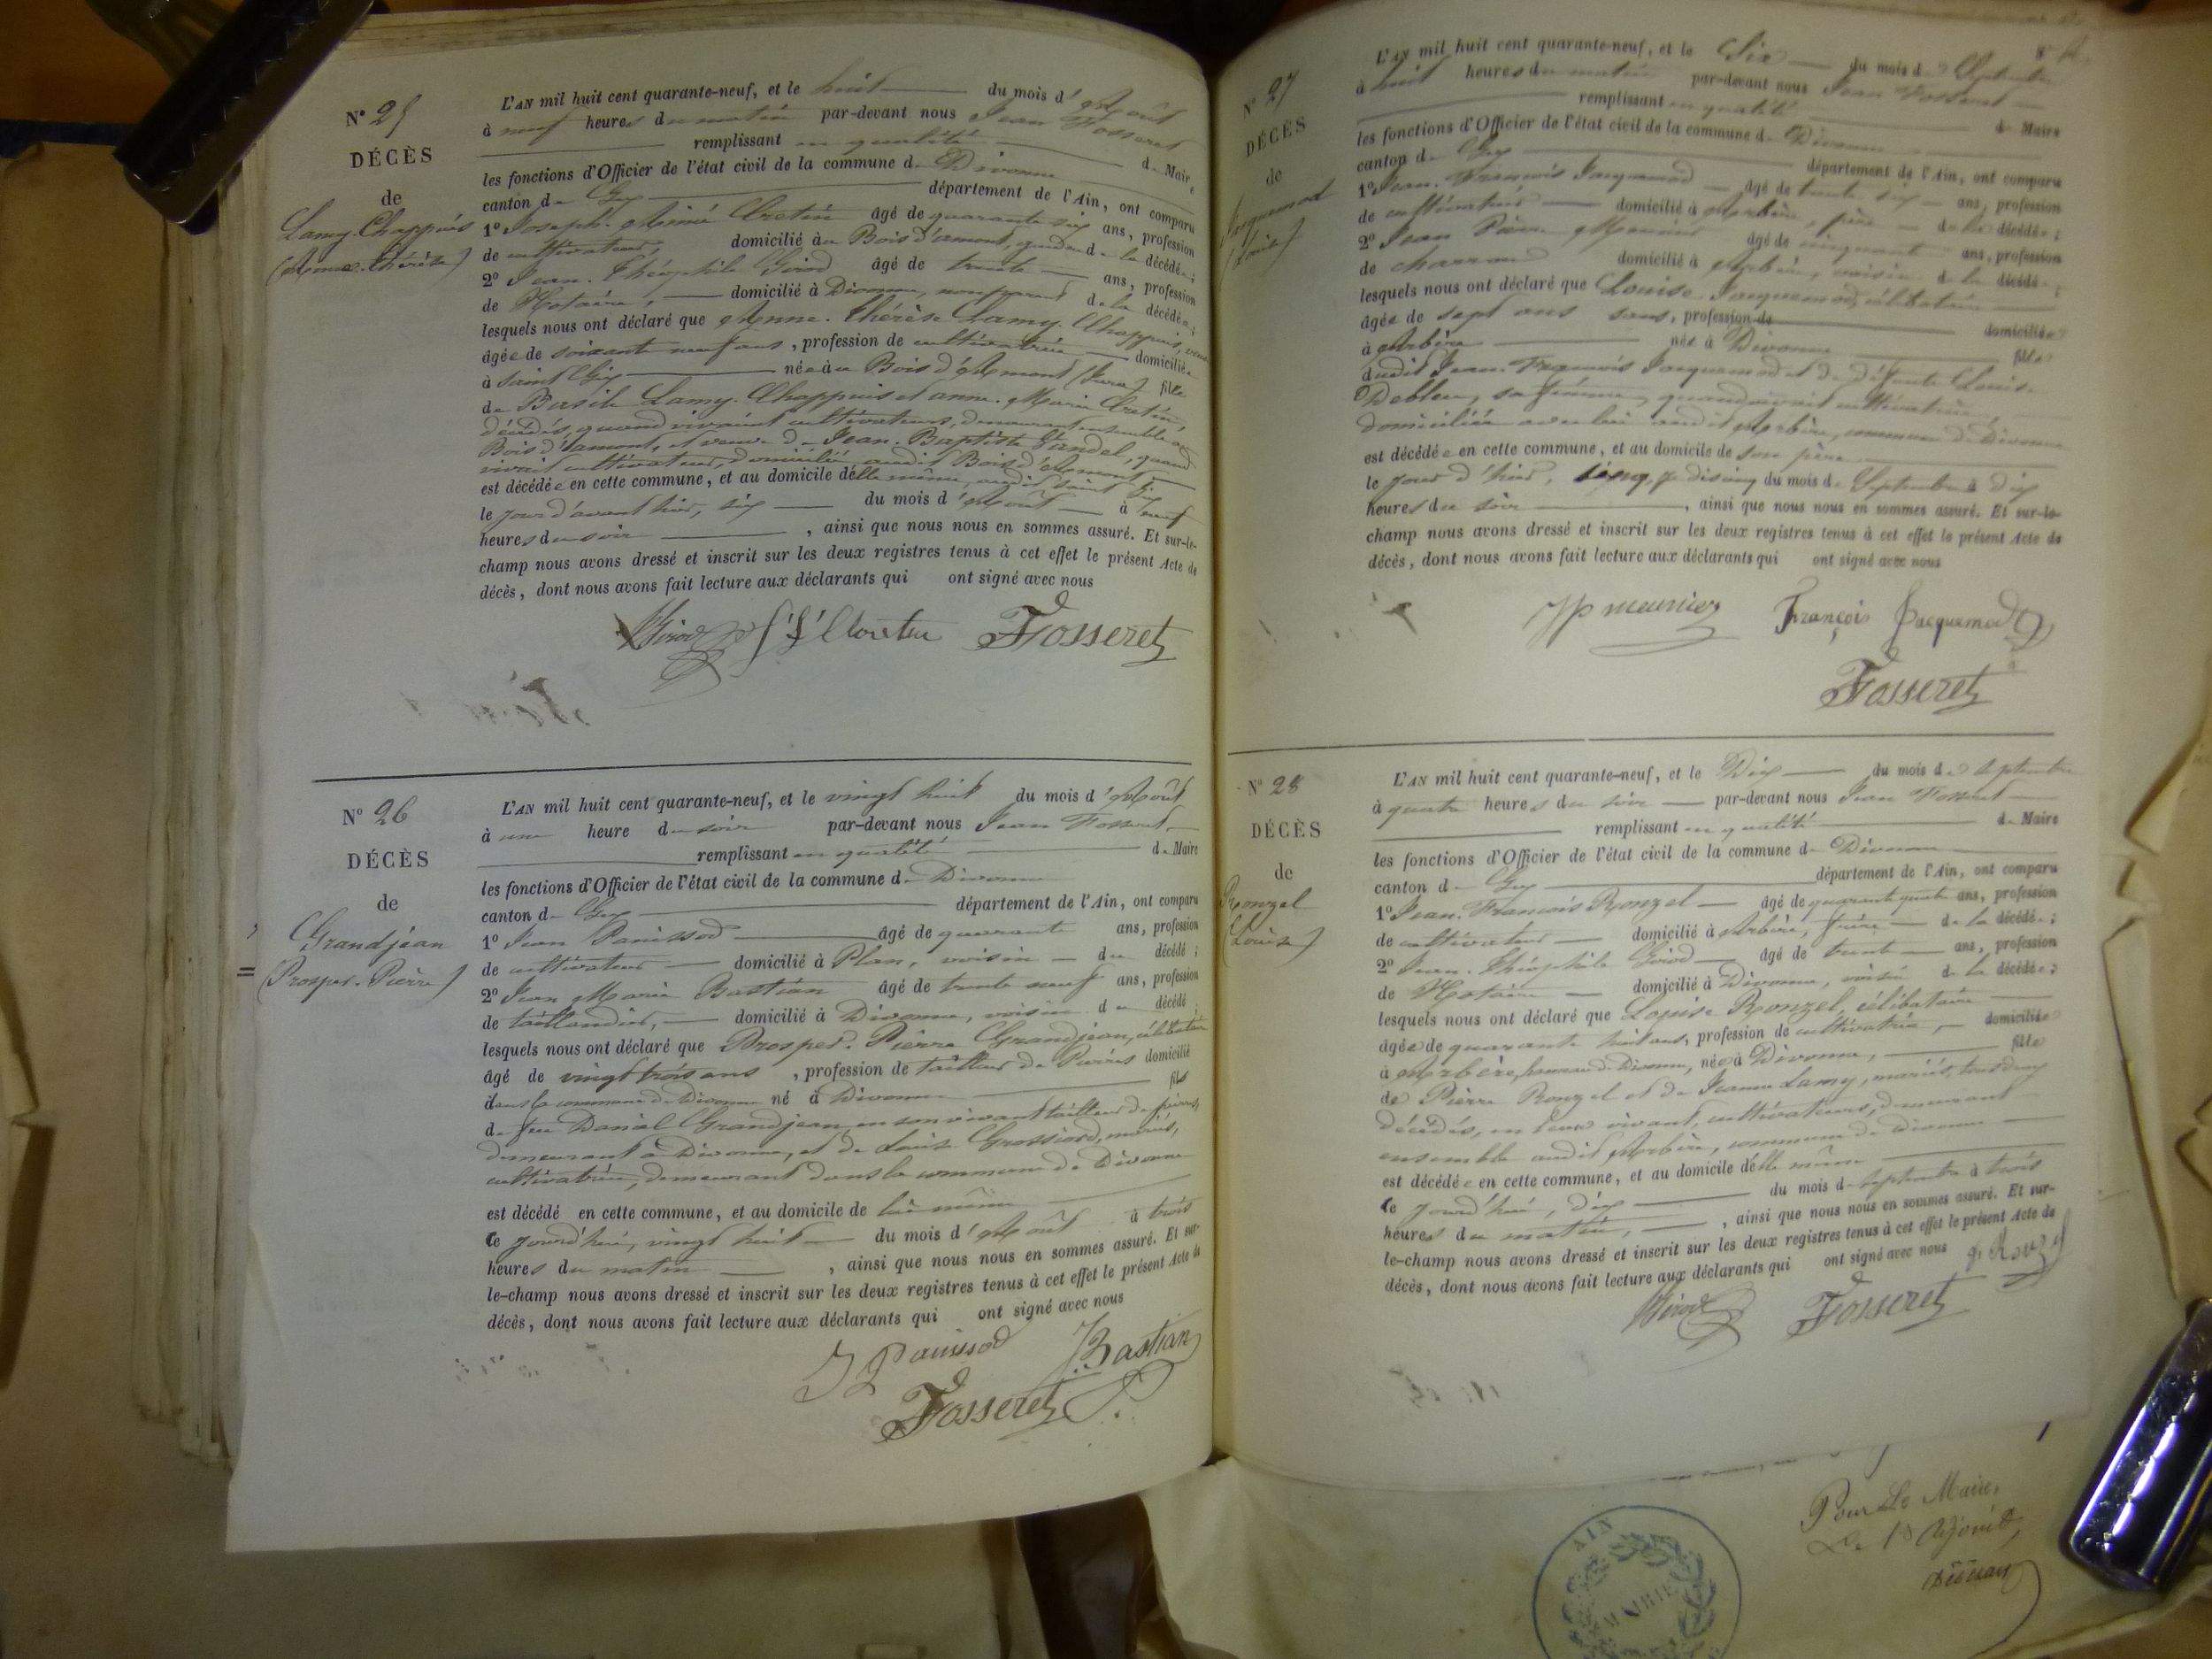 N° 25
DÉCÈS
de
Lamy-Chappuis
(Anne-Thérèse)
L'AN mil huit cent quarante-neuf, et le huit du mois d'Août
à neuf heures du matin par-devant nous Jean Fosseret
remplissant en qualité de Maire
les fonctions d'Officier de l'état civil de la commune de Divonne
canton de Gex département de l'Ain, ont comparu
1° Joseph-Aimé Cretin âgé de quarante six ans, profession
de cultivateur, domicilié au Bois d'amont, de la décédée;
2° Jean-Théophile Girod âgé de trente ans, profession
de Notaire, domicilié à Divonne, non parent de la décédée;
lesquels nous ont déclaré que Anne-Thérèse Lamy-Chappuis, veuve
âgée de soixante neuf ans, profession de cultivatrice domiciliée
à Saint Gix née au Bois d'Amont (Jura) fille
de Basile Lamy-Chappuis et anne-Marie Cretin,
décédés, quand vivaient cultivateurs, demeurant ensemble au
Bois d'amont, et veuve de Jean-Baptiste Vandel, quand
vivait cultivateur, domicilié audit Bois d'Amont
est décédée en cette commune, et au domicile d'elle même, audit Saint Gix
le jour d'avant hier, six du mois d'Août à neuf
heures du soir, ainsi que nous nous en sommes assuré. Et sur-le-
champ nous avons dressé et inscrit sur les deux registres tenus à cet effet le présent Acte de
décès, dont nous avons fait lecture aux déclarants qui ont signé avec nous
Girod Fosseret
N° 26
DÉCÈS
de
Grandjean
(Prosper-Pierre)
L'AN mil huit cent quarante-neuf, et le vingt huit du mois d'Août
à une heure du soir par-devant nous Jean Fosseret
remplissant en qualité de Maire
les fonctions d'Officier de l'état civil de la commune de Divonne
canton de Gex département de l'Ain, ont comparu
1° Jean Panissod âgé de quarante ans, profession
de cultivateur domicilié à Plan, voisin du décédé;
2° Jean Marie Bastian âgé de trente neuf ans, profession
de taillandier, domicilié à Divonne, voisin du décédé
lesquels nous ont déclaré que Prosper-Pierre Grandjean, célibataire
âgé de vingt trois ans, profession de tailleur de Pierres domicilié
dans la commune de Divonne né à Divonne fils
de feu Daniel Grandjean, en son vivant tailleur de pierres,
demeurant à Divonne, et de Louise Grossiord, mariés,
cultivatrice, demeurant dans la commune de Divonne
est décédé en cette commune, et au domicile de lui même
ce jourd'hui, vingt huit du mois d'Août à trois
heures du matin, ainsi que nous nous en sommes assuré. Et sur-
le-champ nous avons dressé et inscrit sur les deux registres tenus à cet effet le présent Acte de
décès, dont nous avons fait lecture aux déclarants qui ont signé avec nous
J Panissod J Bastian
Fosseret
N° 27
DÉCÈS
de
Jacquemod
(Louise)
L'AN mil huit cent quarante-neuf, et le Six du mois de Septembre
à huit heures du matin par-devant nous Jean Fosseret
remplissant en qualité de Maire
les fonctions d'Officier de l'état civil de la commune de Divonne
canton de Gex département de l'Ain, ont comparu
1° Jean-François Jacquemod âgé de trente six ans, profession
de cultivateur domicilié à Arbère, père de la décédée;
2° Jean Pierre Meunier âgé de cinquante ans, profession
de charron domicilié à Arbère, voisin de la décédée;
lesquels nous ont déclaré que Louise Jacquemod, célibataire
âgée de sept ans sans, profession de domiciliée
à Arbère née à Divonne fille
dudit Jean-François Jacquemod et de défunte Louise
sa femme, quand vivait cultivatrice,
domiciliée avec lui audit Arbère, commune de Divonne
est décédée en cette commune, et au domicile de son père
le jour d'hier, cinq, je dis cinq du mois de Septembre à dix
heures du soir, ainsi que nous nous en sommes assuré. Et sur-le-
champ nous avons dressé et inscrit sur les deux registres tenus à cet effet le présent Acte de
décès, dont nous avons fait lecture aux déclarants qui ont signé avec nous
JP meunier François Jacquemod
Fosseret
N° 28
DÉCÈS
de
Ronzel
(Louise)
L'AN mil huit cent quarante-neuf, et le Dix du mois de Septembre
à quatre heures du soir par-devant nous Jean Fosseret
remplissant en qualité de Maire
les fonctions d'Officier de l'état civil de la commune de Divonne
canton de Gex département de l'Ain, ont comparu
1° Jean-François Ronzel âgé de quarante quatre ans, profession
de cultivateur domicilié à Arbère, frère de la décédée;
2° Jean-Théophile Girod âgé de trente ans, profession
de Notaire domicilié à Divonne, voisin de la décédée;
lesquels nous ont déclaré que Louise Ronzel, célibataire
âgée de quarante huit ans, profession de cultivatrice, domiciliée
à Arbère, commune de Divonne, née à Divonne, fille
de Pierre Ronzel et de Jeanne Lamy, mariés, tous deux
décédés, en leur vivant, cultivateurs, demeurant
ensemble audit Arbère, commune de Divonne
est décédée en cette commune, et au domicile d'elle même
Ce jourd'hui, dix du mois de septembre à trois
heures du matin, ainsi que nous nous en sommes assuré. Et sur-
le-champ nous avons dressé et inscrit sur les deux registres tenus à cet effet le présent Acte de
décès, dont nous avons fait lecture aux déclarants qui ont signé avec nous
Girod Fosseret
Pour Le Maire,
AIN
MAIRIE